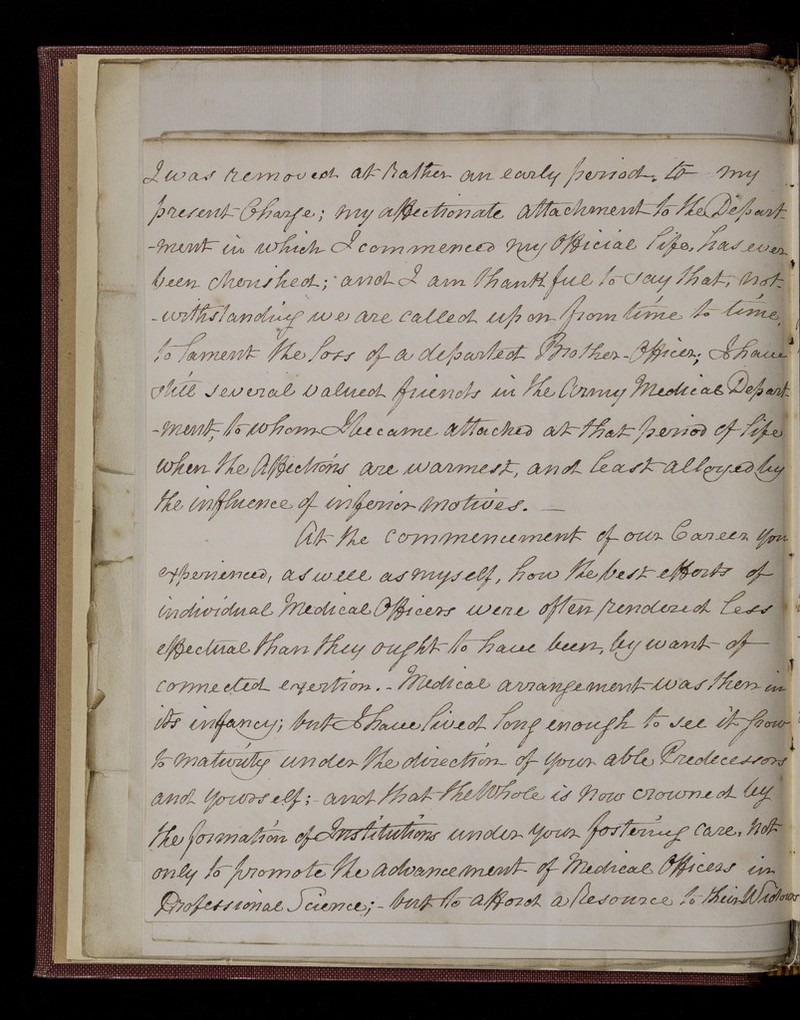 I was removed at rather an early period, to my
present Charge; my affectionate attachment to the Depart-
-ment in which I commenced my Official life, has ever
been cherished; and I am thankful to say that, not-
-withstanding we are called upon from time to time,
to lament the loss of a departed Brother-Officer; I have
still several valued friends in the Army Medical Depart-
-ment, to whom I became attached at that period of life
when the Affections are warmest, and least alloyed by
the influence of inferior motives. —
At the commencement of our Career you
experienced, as well as myself, how the best efforts of
individual Medical Officers were often rendered less
effectual than they ought to have been, by want of
connected exertion. - Medical arrangement was then in
its infancy; but I have lived long enough to see it grow
to maturity under the direction of your able Predecessors
and yourself; - and that the Whole is now crowned by
the formation of Institutions under your fostering care, not
only to promote the advancement of Medical Officers in
Professional Science; - but to afford a Resource to their Widows